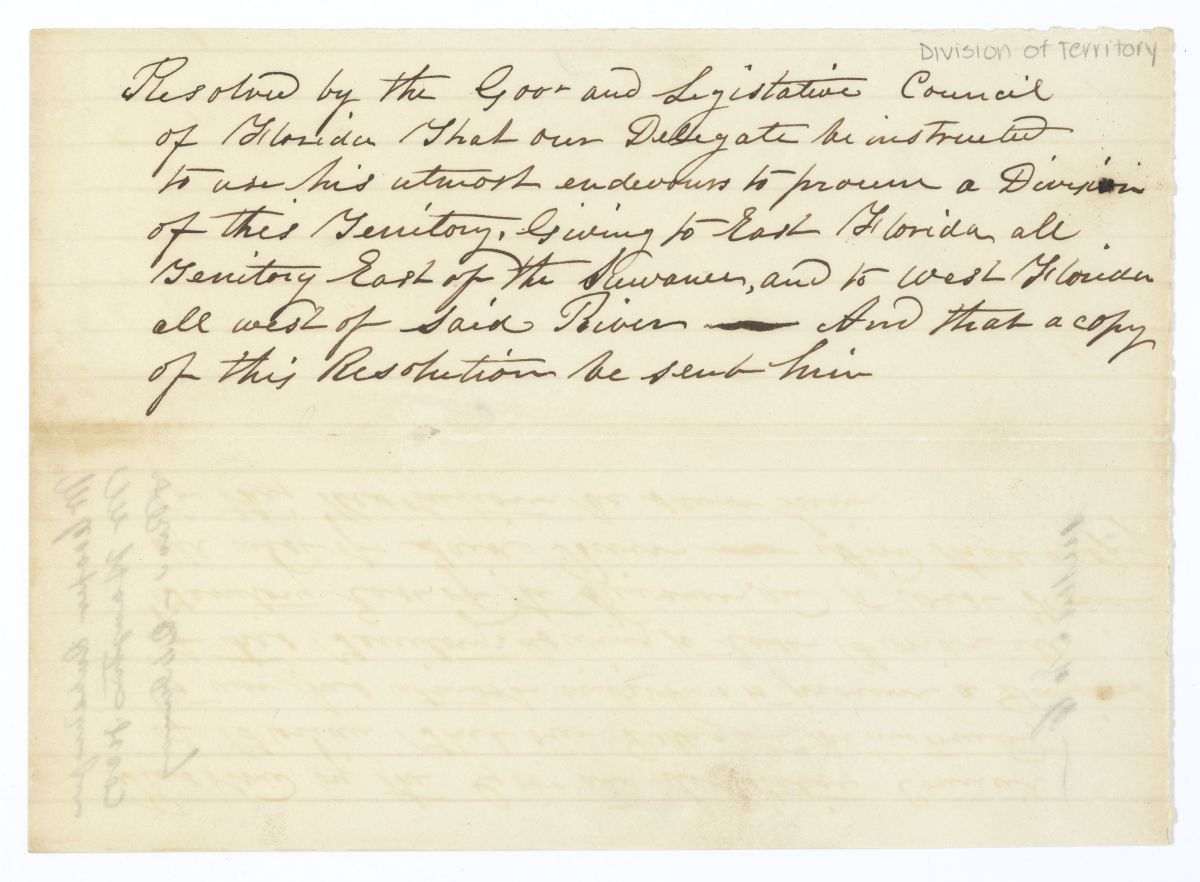 Division of Territory
Resolved by the Govr and Legistative Council
of Florida That our Delegate be instructed
to use his utmost endevours to procure a Division
of this Territory, Giving to East Florida all
Territory East of the Suwanee, and to West Florida
all west of said River — And that a copy
of this Resolution be sent him